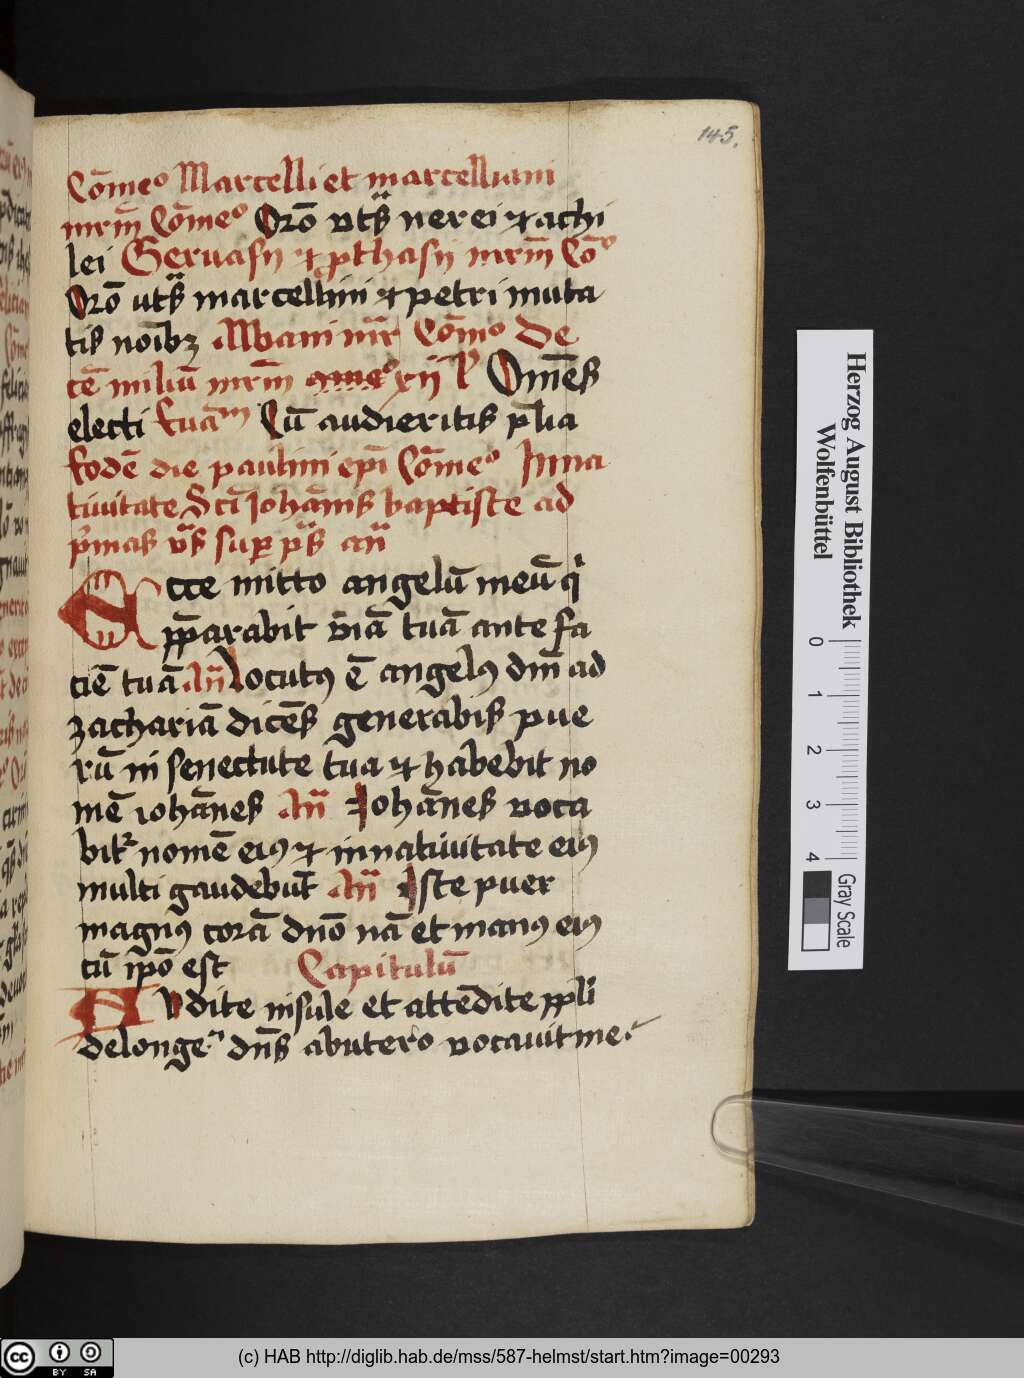 145.
Cōmeo Marcelli et marcelliani
mrm̄ Cōmeo Orō vts nerei ⁊ achi
lei Gervasij ⁊ ꝓthasij mrm̄ Cōo
Orō uts marcellini ⁊ petri muta
tis noībꝫ Albani mr̄ Cōmo De
cē miliū mrm̄ xij l' Om̄es
electi Euām Cū audieritis p̄lia
Eodē die paulini epī Cōmeo In na
tiuitate Scī Johānis baptiste ad
p̄mas vs̄ suꝑ ps̄ an̄
Ecce mitto angelū meū qi
p̄parabit viā tuā ante fa
ciē tuā An̄ Locutꝰ ē angelꝰ dn̄i ad
zachariā dicēs generabis pue
rū in senectute tua ⁊ habebit no
mē iohānes An̄ Johānes voca
bitr nomē eiꝰ ⁊ in natiuitate eiꝰ
multi gaudebūt An̄ Iste puer
magnꝰ corā dn̄o nā et manꝰ eiꝰ
cū ip̄o est Capitulū
Audite insule et attēdite ppl̄i
de longe dn̄s ab utero vocauit me
Herzog August Bibliothek
Wolfenbüttel
0 1 2 3 4
Gray Scale
cc BY SA
(c) HAB http://diglib.hab.de/mss/587-helmst/start.htm?image=00293